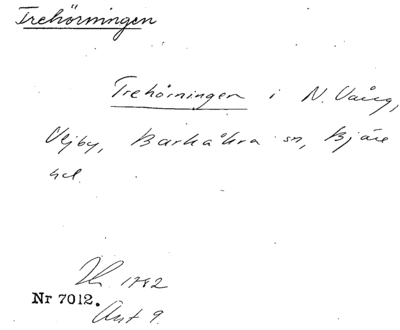 Trehörningen
Trehörningen i N. Vång,
Vejby, Barkåkra sn, Bjäre
hd.
1782
Nr 7012.
Akt 9.